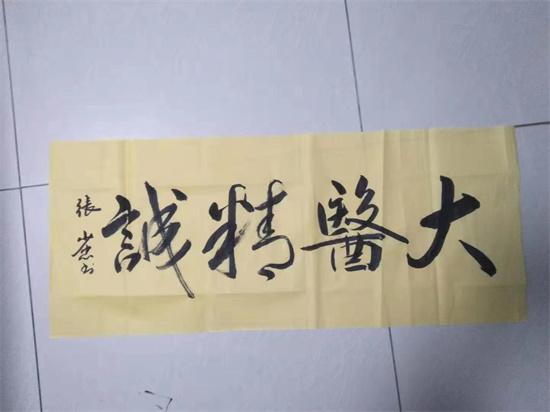 大醫精誠
張